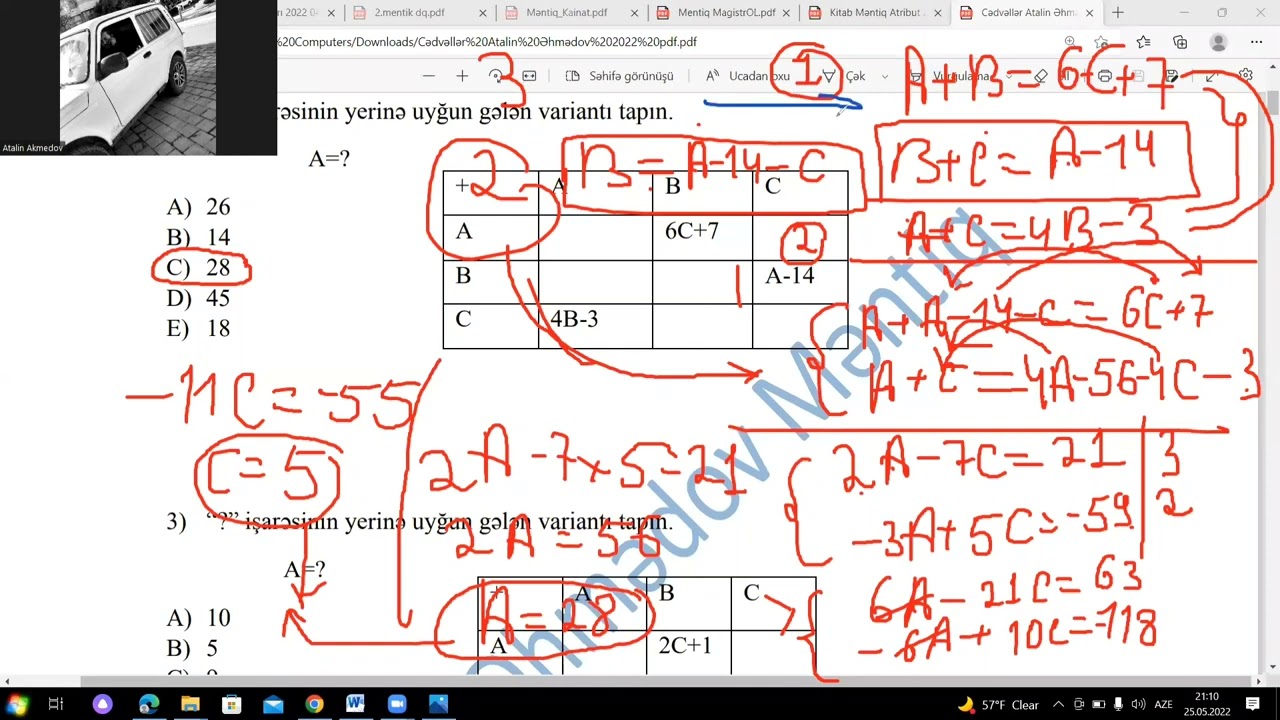 2022 04
2.mentik dq.pdf
Məntiq_Kainat.pdf
Mentiq MagistrOL.pdf
Kitab Məntiq Atribut
Cədvəllər Atalin Əhm
%20Computers/Downloads/Cədvəllər%20Atalin%20Əhmədov%202022%20pdf.pdf
Səhifə görünüşü
Ucadan oxu
Çək
Vurğulama
Atalin Akmedov
3
1
A+B=6C+7
B+C=A-14
A+C=4B-3
əsinin yerinə uyğun gələn variantı tapın.
A=?
A) 26
B) 14
C) 28
D) 45
E) 18
2
B=A-14-C
+ A B C
A 6C+7
B A-14
C 4B-3
2
A+A-14-C=6C+7
A+C=4A-56-4C-3
-11C=-55
C=5
2A-7C=21 3
-3A+5C=-59 2
6A-21C=63
-6A+10C=-118
2A-7×5=21
2A=56
A=28
3) “?” işarəsinin yerinə uyğun gələn variantı tapın.
A=?
A) 10
B) 5
+ A B C
A 2C+1
Əhmədov Məntiq
57°F Clear
AZE
21:10
25.05.2022